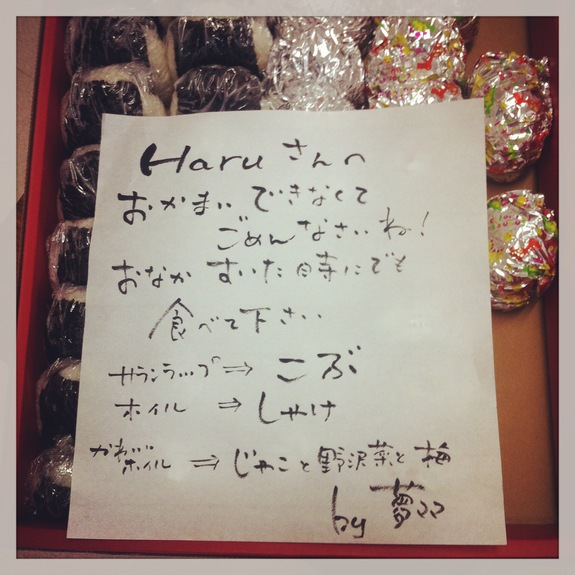 Haruさんの
おかまいできなくて
ごめんなさいね!
おなかすいた時にでも
食べて下さい
サランラップ⇒こぶ
ホイル⇒しゃけ
かわいいホイル⇒じゃこと野沢菜と梅
by 夢ママ